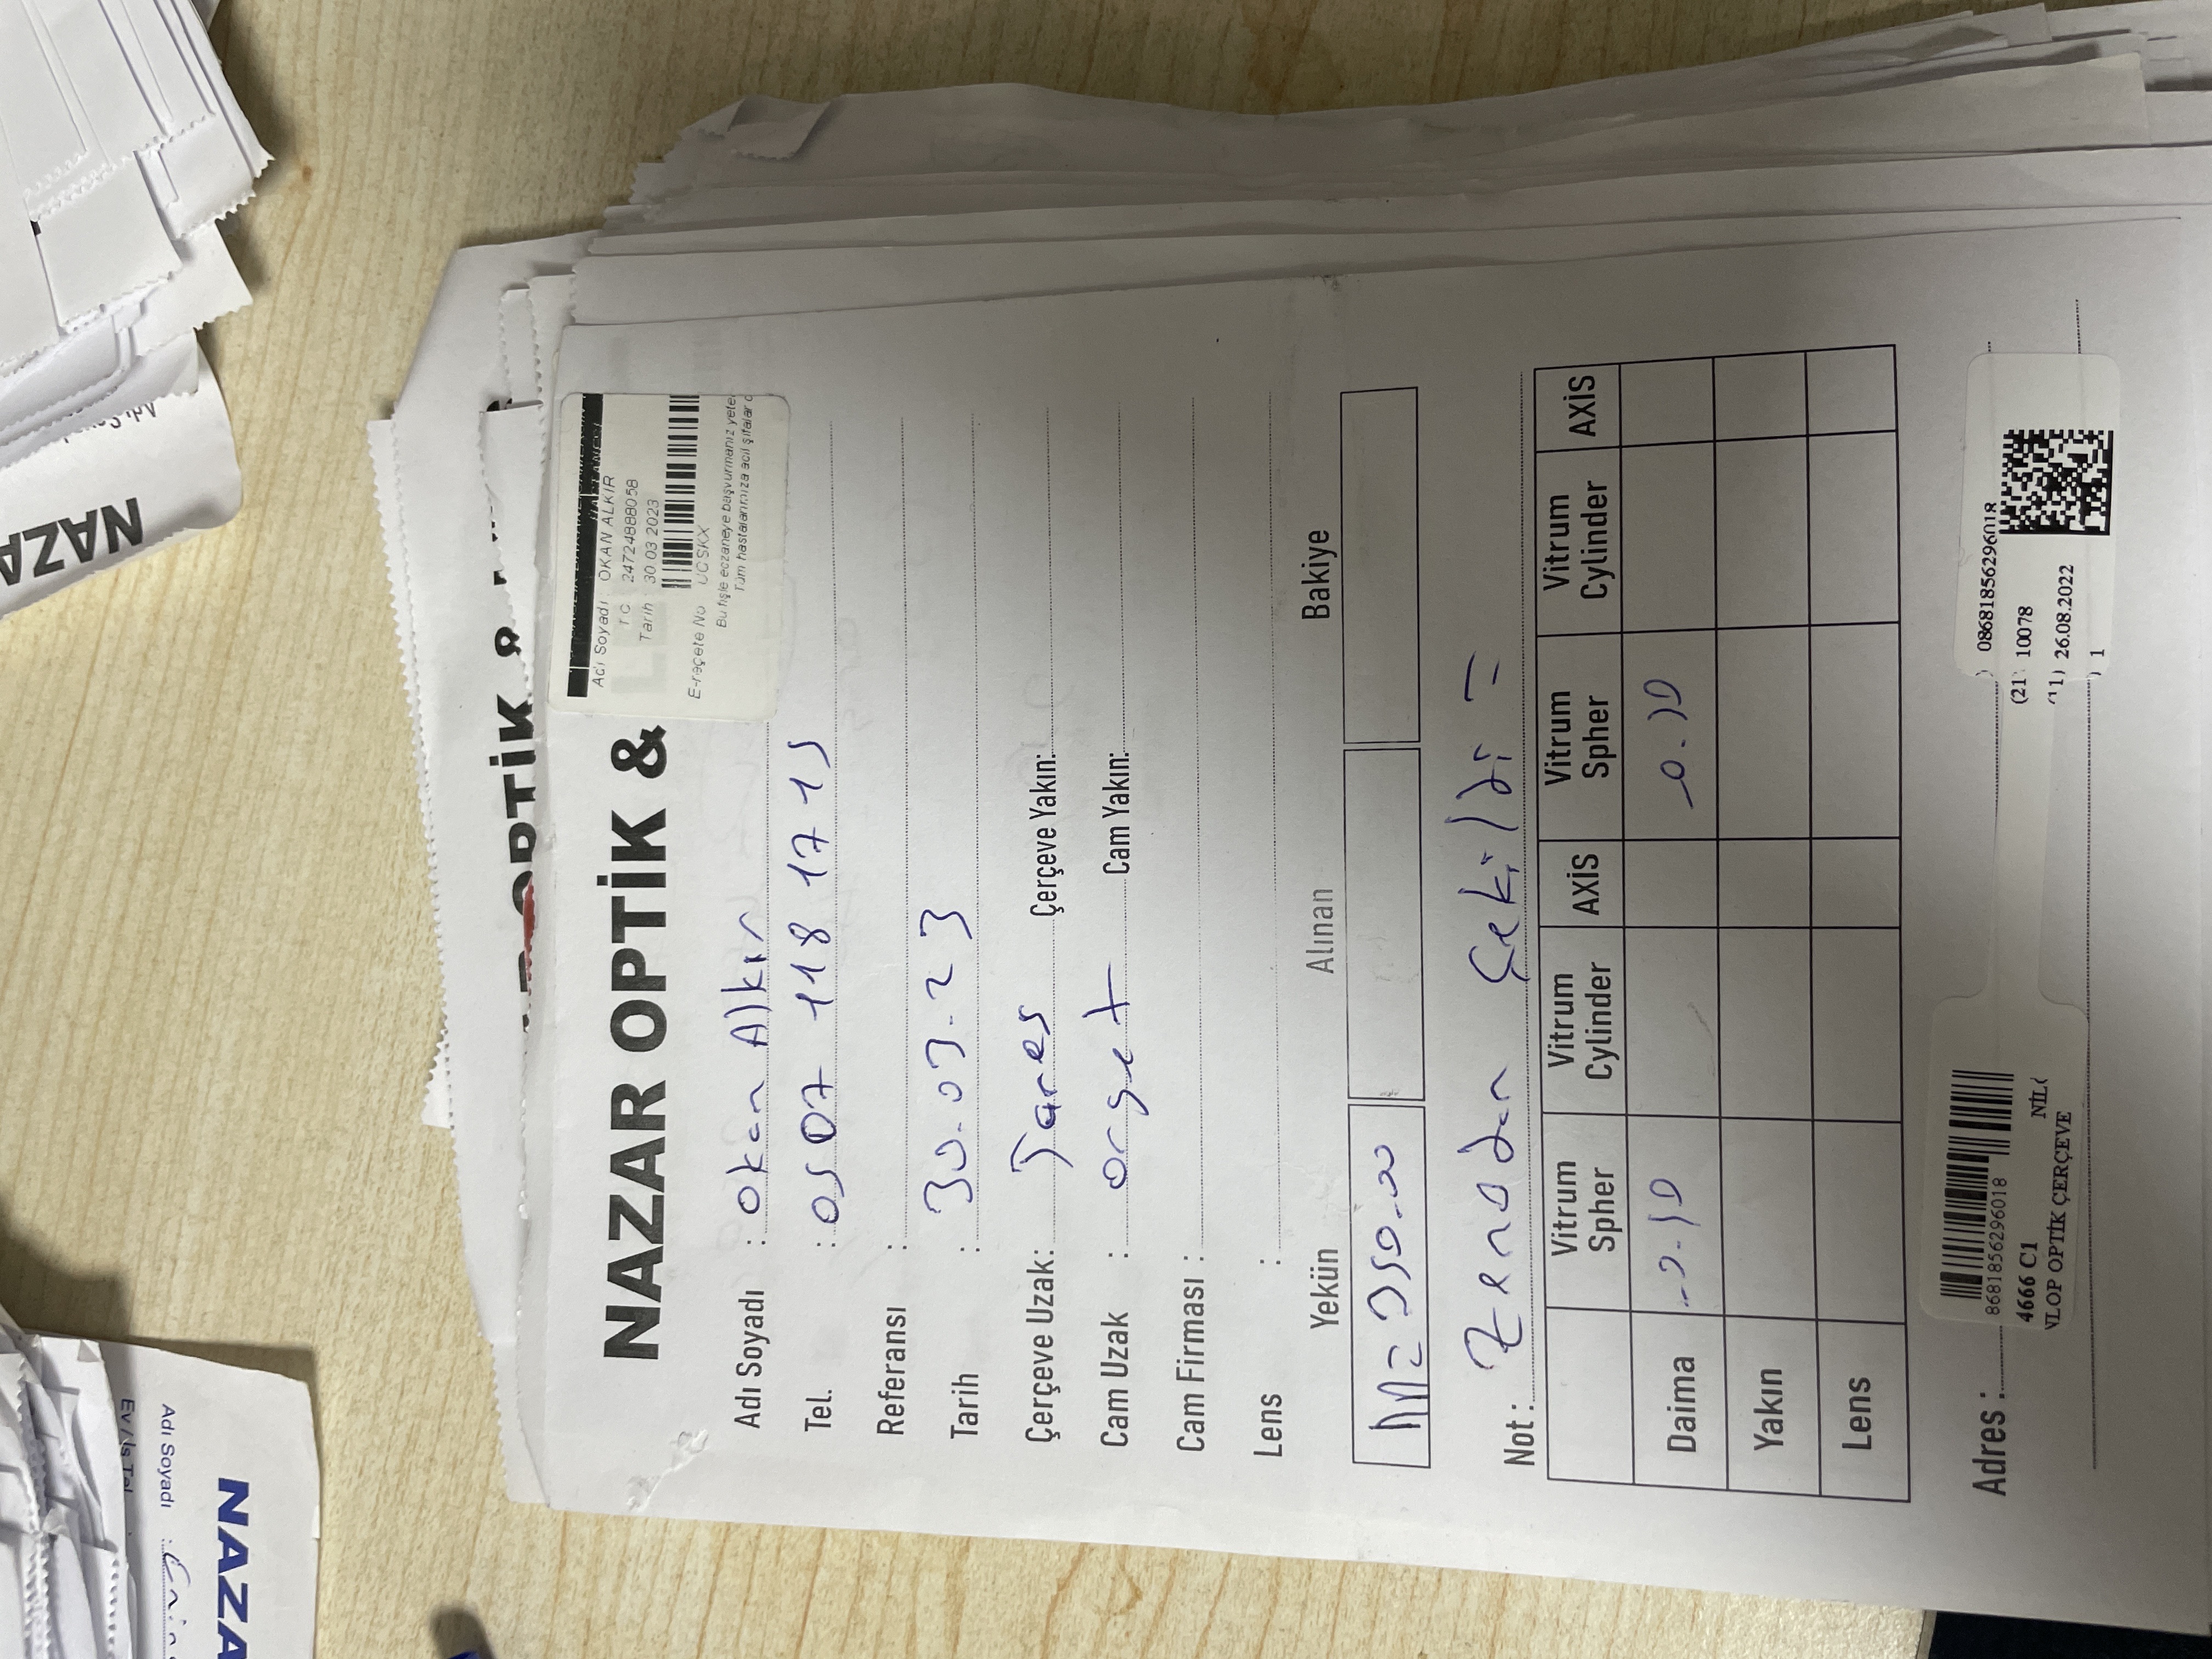 Ev / İş Tel
Adı Soyadı :
NAZA
NAZA
OPTİK &
NAZAR OPTİK &
HASTANESİ
Adı Soyadı : OKAN ALKIR
TC 24724888058
Tarih 30 03 2023
E-reçete No UCSKX
Bu fişle eczaneye başvurmanız yete
Tüm hastalarımıza acil şifalar d
Adı Soyadı : Okan Alkır
Tel. : 0507 118 17 15
Referansı :
Tarih : 30.03.23
Çerçeve Uzak: Çerçeve Yakın:
Cam Uzak : Cam Yakın:
Cam Firması :
Lens :
Yekün Alınan Bakiye
Not : Çekildi =
Vitrum Spher Vitrum Cylinder AXİS Vitrum Spher Vitrum Cylinder AXİS
Daima
Yakın
Lens
Adres :
8681856296018
4666 C1 NİL
NLOP OPTİK ÇERÇEVE
) 08681856296018
(21) 10078
(11) 26.08.2022
) 1